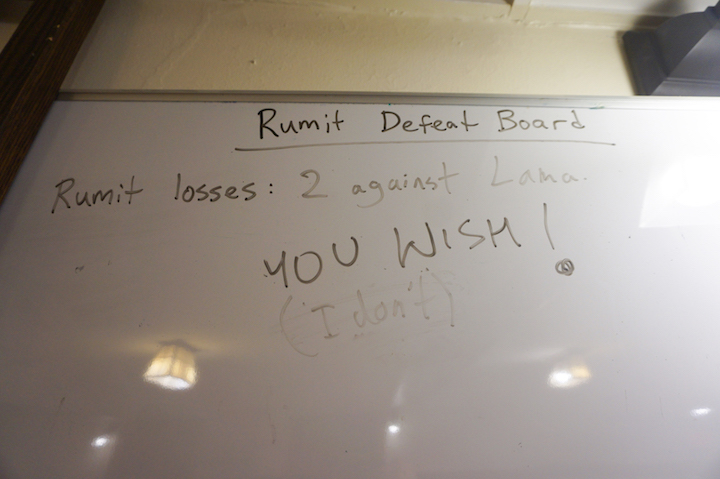 Rumit Defeat Board
Rumit losses: 2 against Lama.
YOU WISH!
(I don't)